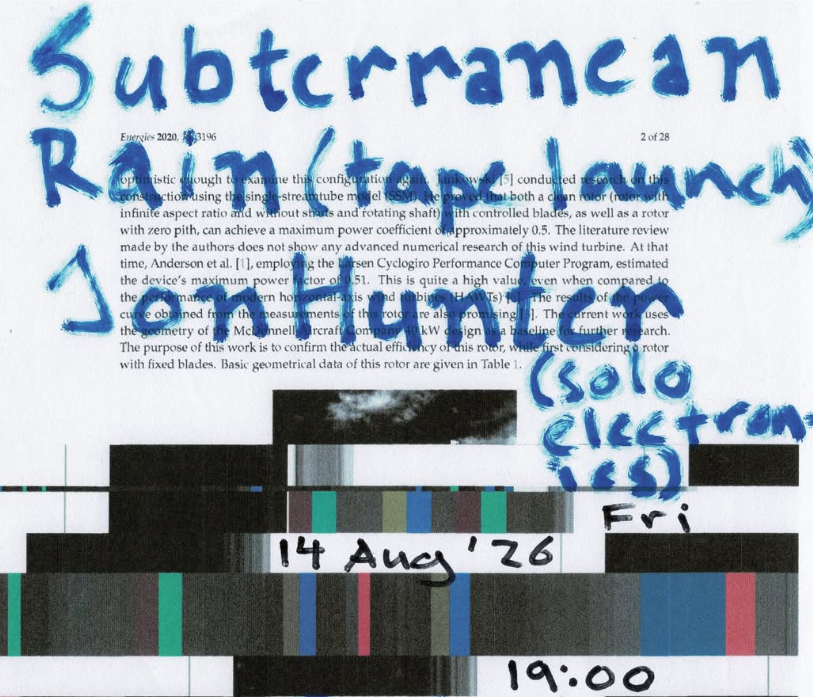 Subterranean
Energies 2020, 3196
2 of 28
Rain (tape launch)
optimistic enough to examine this configuration again. Jankowski [5] conducted research on this
construction using the single-streamtube model (SSM). He proved that both a clean rotor (rotor with
infinite aspect ratio and without struts and rotating shaft) with controlled blades, as well as a rotor
with zero pith, can achieve a maximum power coefficient of approximately 0.5. The literature review
made by the authors does not show any advanced numerical research of this wind turbine. At that
time, Anderson et al. [1], employing the Larsen Cyclogiro Performance Computer Program, estimated
the device's maximum power factor of 0.51. This is quite a high value, even when compared to
the performance of modern horizontal-axis wind turbines (HAWTs) The results of the power
curve obtained from the measurements of this rotor are also promising The current work uses
the geometry of the McDonnell Aircraft Company 40 kW design as a baseline for further research.
The purpose of this work is to confirm the actual efficiency of this rotor, while first considering a rotor
with fixed blades. Basic geometrical data of this rotor are given in Table 1.
Jon Hunter
(solo
electron-
ics)
Fri
14 Aug '26
19:00